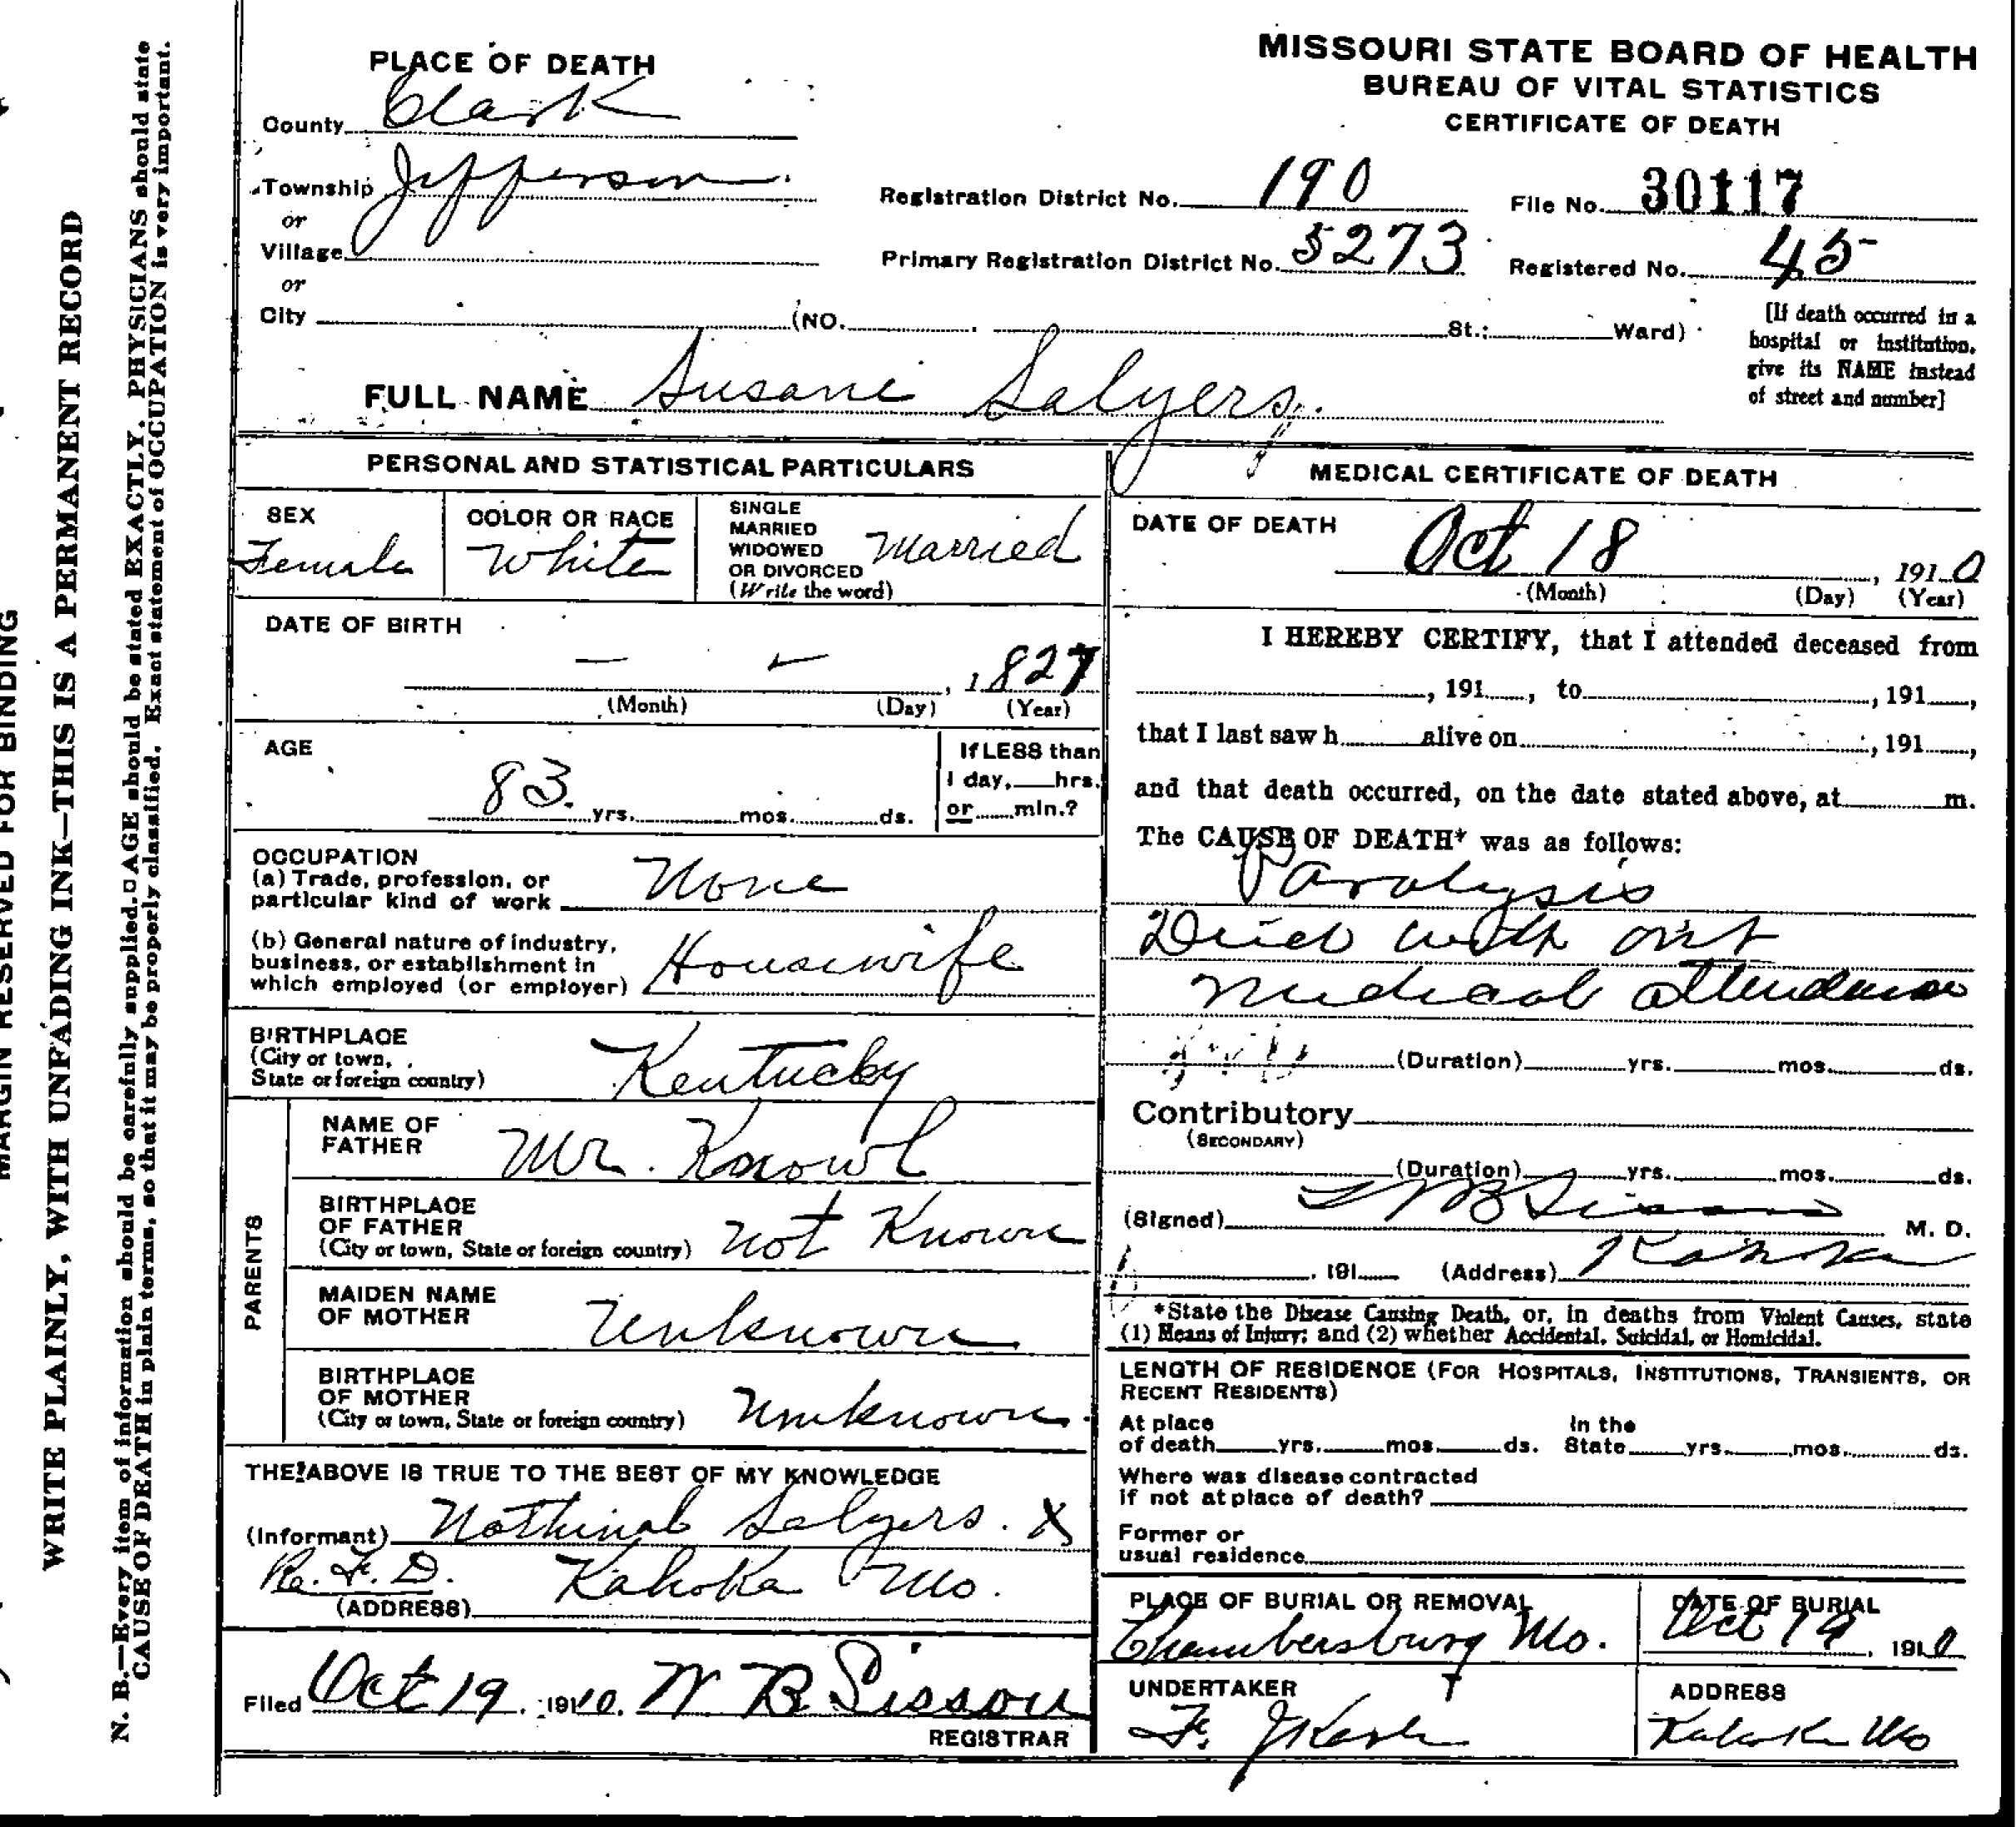 MARGIN RESERVED FOR BINDING
WRITE PLAINLY, WITH UNFADING INK—THIS IS A PERMANENT RECORD
N. B.—Every item of information should be carefully supplied. AGE should be stated EXACTLY. PHYSICIANS should state
CAUSE OF DEATH in plain terms, so that it may be properly classified. Exact statement of OCCUPATION is very important.
MISSOURI STATE BOARD OF HEALTH
BUREAU OF VITAL STATISTICS
CERTIFICATE OF DEATH
PLACE OF DEATH
County Clark
Township Jefferson
or
Village
or
City (NO. St.; Ward)
Registration District No. 190 File No. 30117
Primary Registration District No. 5273 Registered No. 45
[If death occurred in a
hospital or institution,
give its NAME instead
of street and number]
FULL NAME Susani Salyers
PERSONAL AND STATISTICAL PARTICULARS
SEX
Female
COLOR OR RACE
White
SINGLE
MARRIED
WIDOWED
OR DIVORCED
(Write the word)
Married
DATE OF BIRTH
— — , 1827
(Month) (Day) (Year)
AGE
83 yrs. mos. ds.
If LESS than
1 day, hrs.
or min.?
OCCUPATION
(a) Trade, profession, or
particular kind of work None
(b) General nature of industry,
business, or establishment in
which employed (or employer) Housewife
BIRTHPLACE
(City or town,
State or foreign country) Kentucky
PARENTS
NAME OF
FATHER Mr. Knowl
BIRTHPLACE
OF FATHER
(City or town, State or foreign country) not Known
MAIDEN NAME
OF MOTHER Unknown
BIRTHPLACE
OF MOTHER
(City or town, State or foreign country) Unknown
THE ABOVE IS TRUE TO THE BEST OF MY KNOWLEDGE
(Informant) Nothinal Salyers. X
R. F. D. Kahoka Mo.
(ADDRESS)
Filed Oct 19, 1910. W B Sisson
REGISTRAR
MEDICAL CERTIFICATE OF DEATH
DATE OF DEATH
Oct 18 , 1910
(Month) (Day) (Year)
I HEREBY CERTIFY, that I attended deceased from
, 191 , to , 191 ,
that I last saw h alive on , 191 ,
and that death occurred, on the date stated above, at m.
The CAUSE OF DEATH* was as follows:
Paralysis
Died with out
medical attendance
(Duration) yrs. mos. ds.
Contributory
(SECONDARY)
(Duration) yrs. mos. ds.
(Signed) B Sisson M. D.
, 191 (Address) Kahoka
*State the Disease Causing Death, or, in deaths from Violent Causes, state
(1) Means of Injury; and (2) whether Accidental, Suicidal, or Homicidal.
LENGTH OF RESIDENCE (FOR HOSPITALS, INSTITUTIONS, TRANSIENTS, OR
RECENT RESIDENTS)
At place In the
of death yrs. mos. ds. State yrs. mos. ds.
Where was disease contracted
if not at place of death?
Former or
usual residence
PLACE OF BURIAL OR REMOVAL
Chambersburg Mo.
DATE OF BURIAL
Oct 19, 1910
UNDERTAKER
F. J Karle
ADDRESS
Kahoka Mo